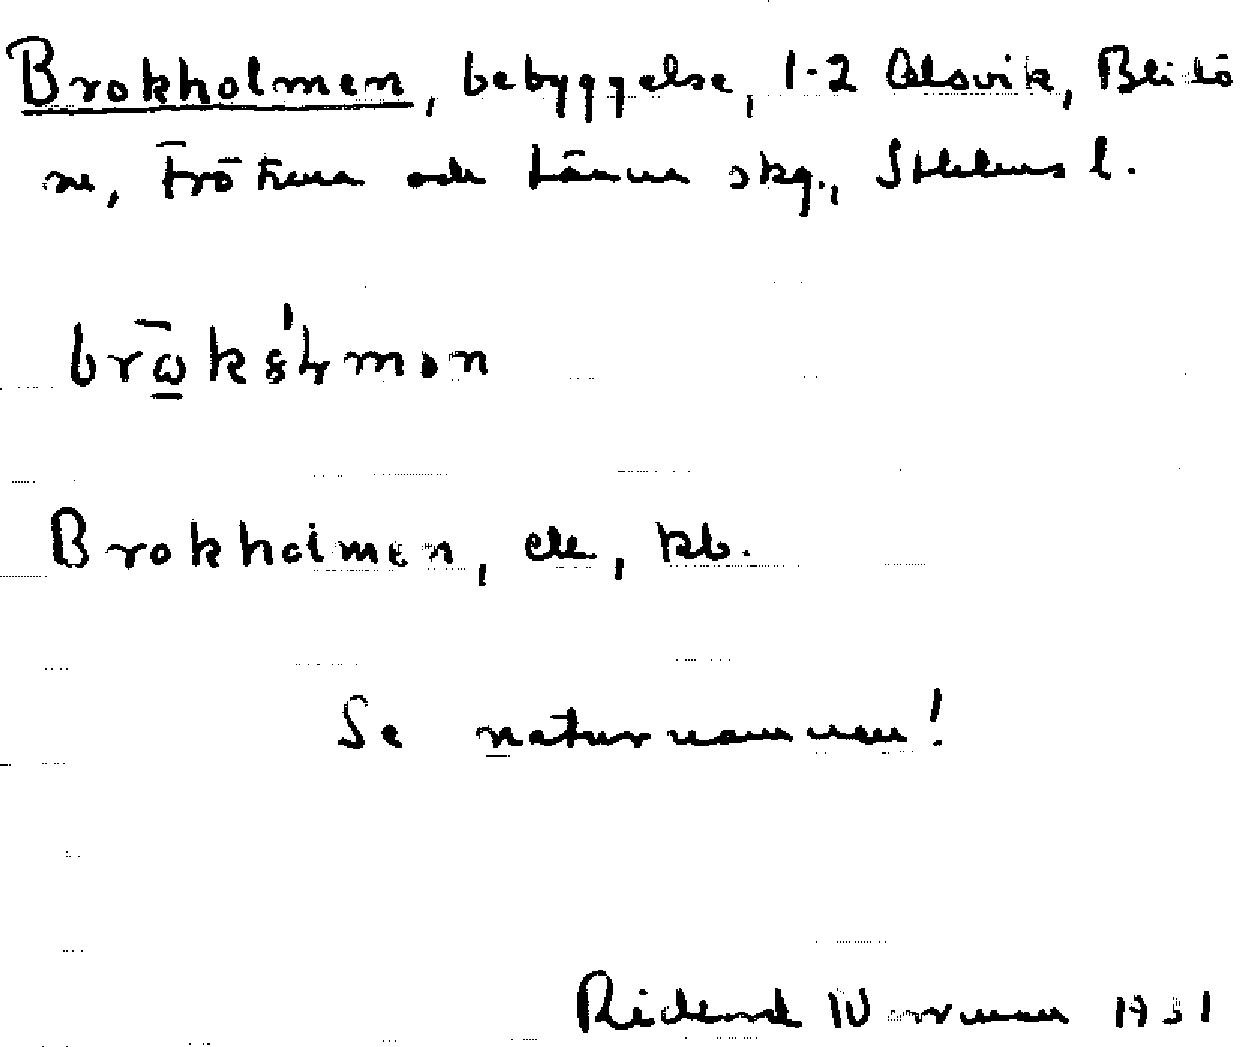 Brokholmen, bebyggelse, 1-2 Alsvik, Blidö
sn, Frötuna och Länna skg., Sthlms l.
Brokholmen, ek, kb.
Se naturnamnen!
Rickard Norrman 1931